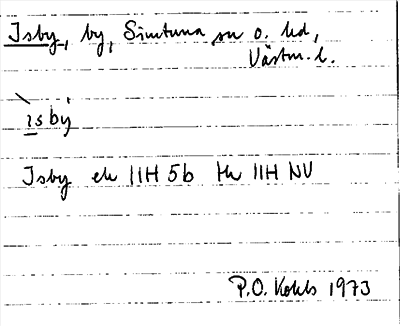 Isby, by, Simtuna sn o. hd,
Västm. l.
ìsby̆
Isby ek 11H 5b tk 11H NV
P.O. Kohls 1973